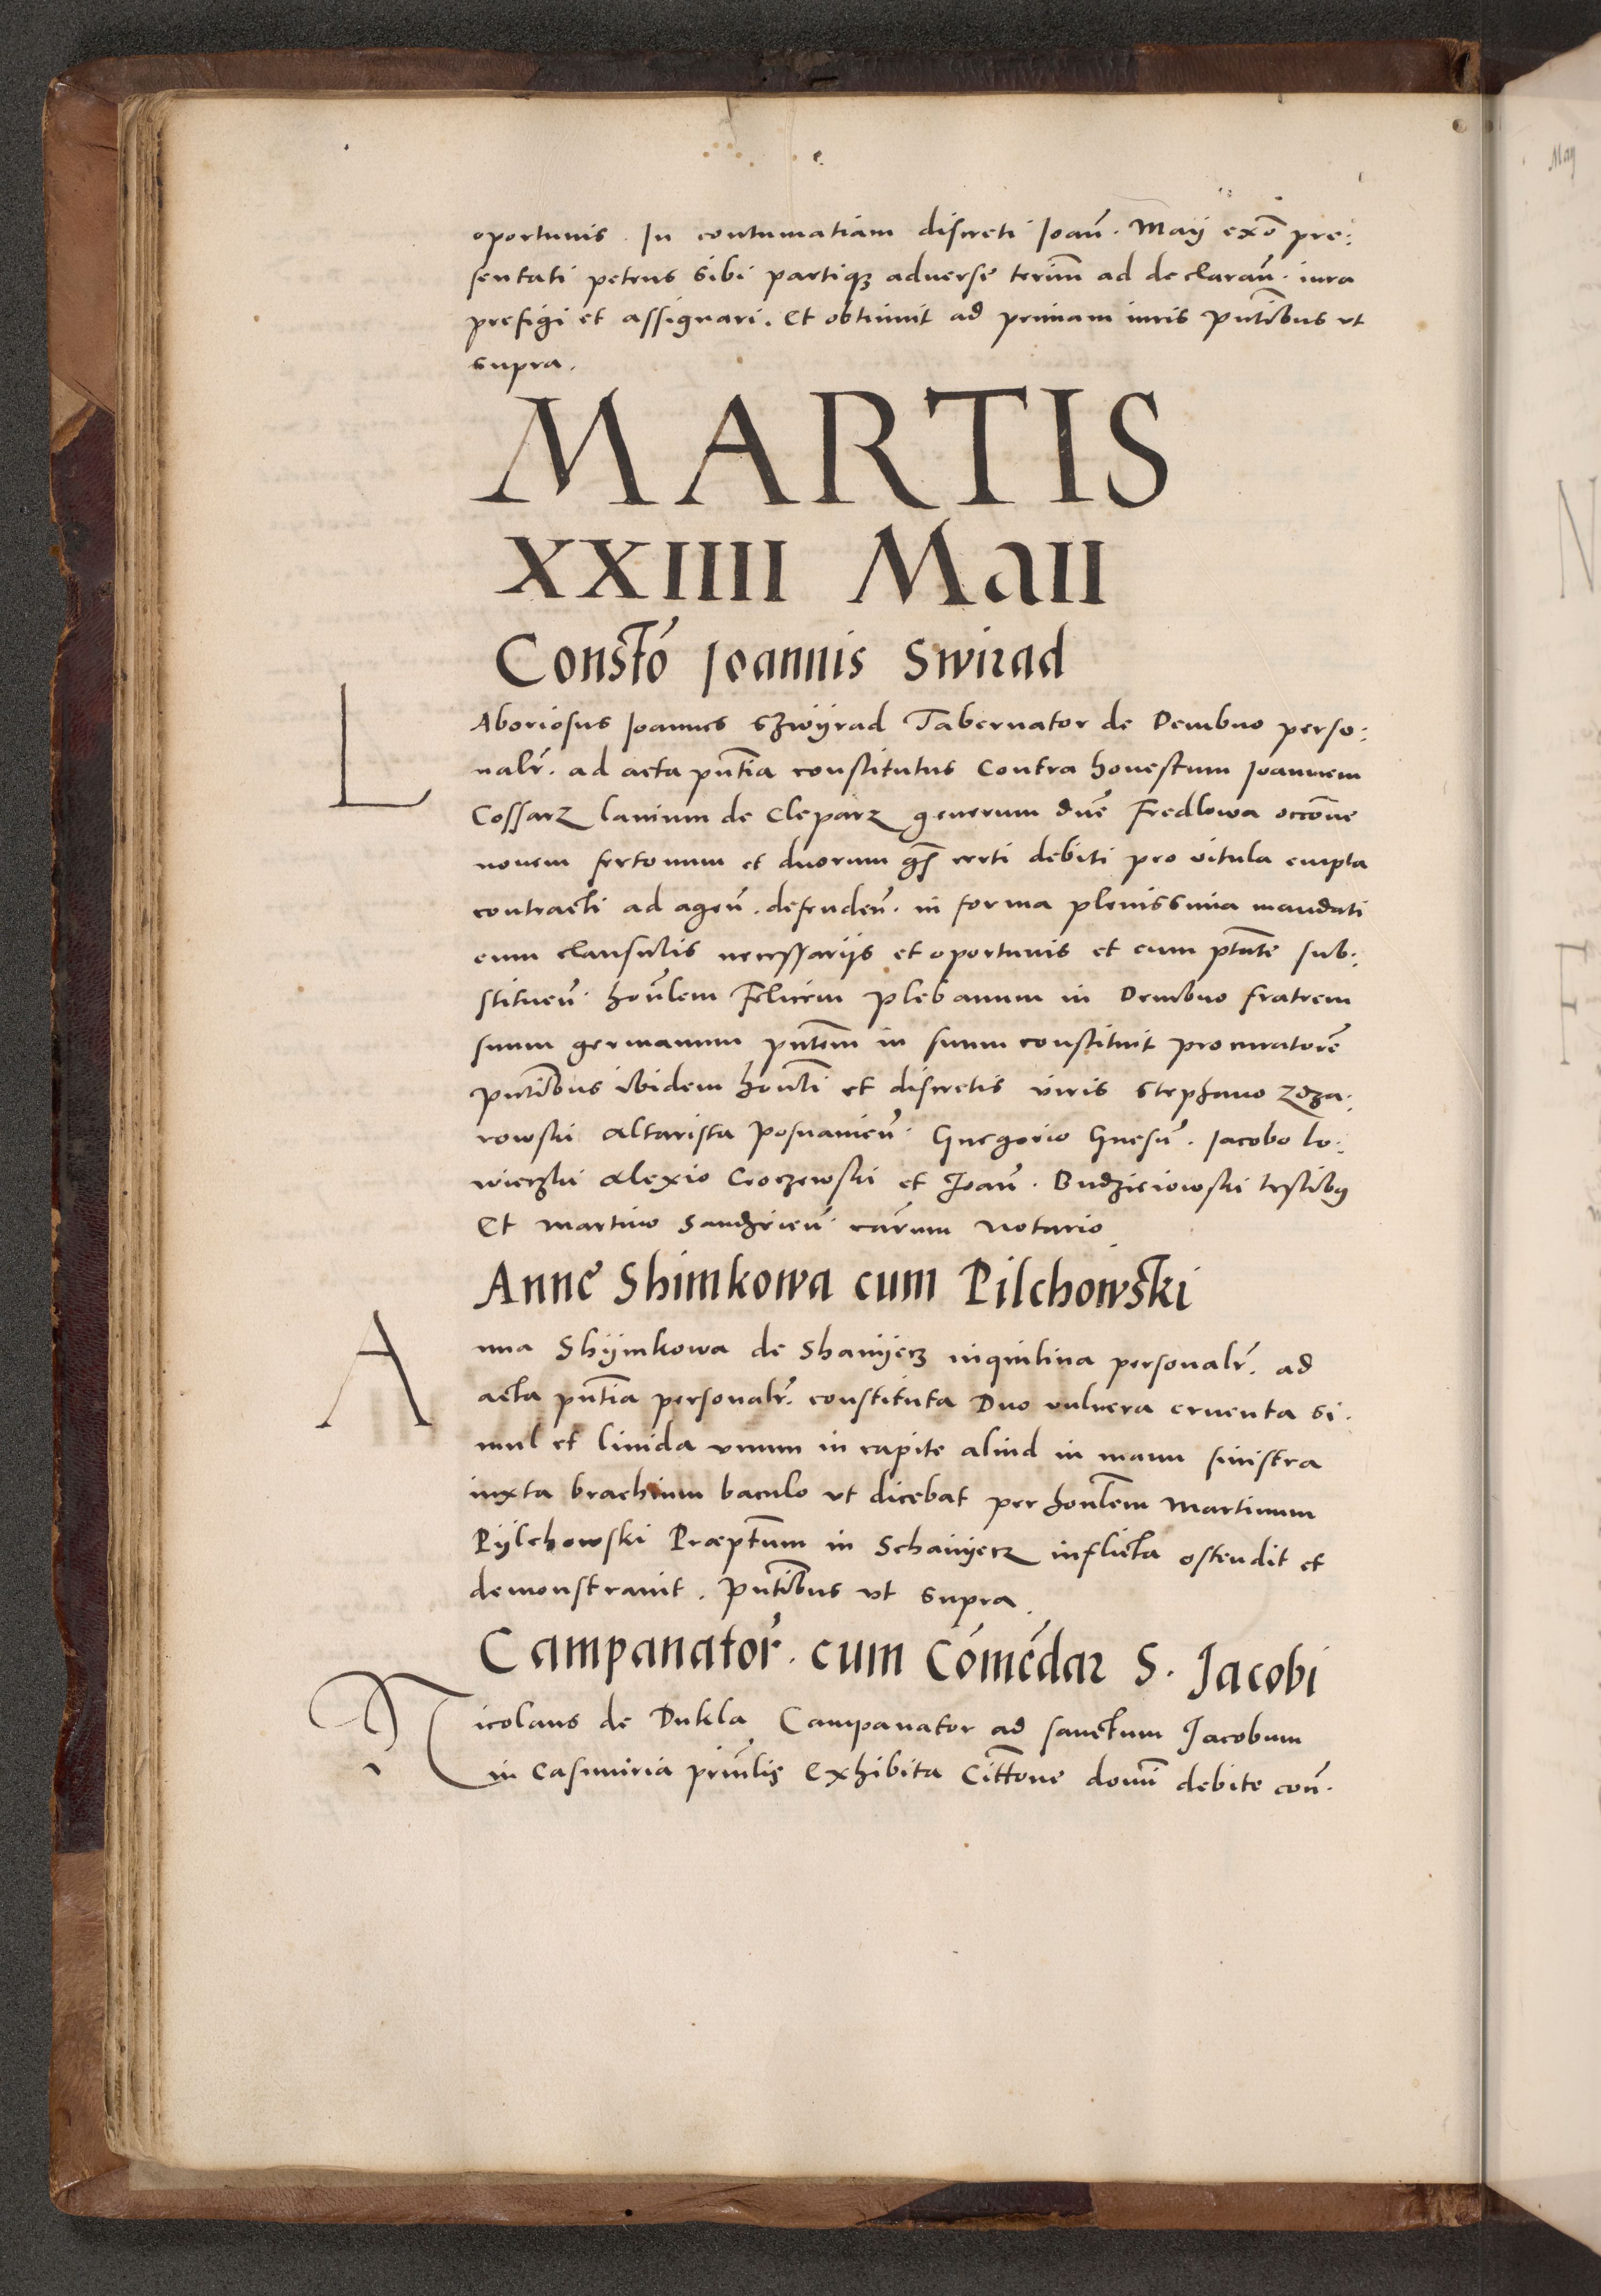 oportunis. In contumatiam discreti Joañ. Maÿ exõ pre:
sentati petens sibi partiqꝫ adverse terim̃ ad declarañ. iura
prefigi et assignari. Et obtinuit ad primam iuris pñtibus vt
supra.
MARTIS
XXIIII MaII
Constõ Joannis Swirad
LAboriosus Joannes Szwÿrad Tabernator de Dembno perso:
nalr̃. ad acta pñtia constitutus Contra honestum Joannem
Cossarz lanium de Cleparz generum dñe Fredlowa occõne
novem fertonum et duorum gṝ certi debiti pro vitula empta
contracti ad ageñ. defendeñ. in forma plenissima mandati
cum clausulis necessariis et oportunis et cum ptãte sub:
stitueñ. hoñlem Felicem plebanum in Dembno fratrem
suum germanum pñtem in suum constituit procuratorẽ
pñtibus ibidem honli et discretis viris Stephano Zdza:
rowski altarista posnanieñ. Gregorio Gnesñ. Jacobo Lo:
wiczski Alexio Croczewski et Joañ. Budzieiowski testibus
Et Martino Sandzicuñ carum notario
Anne Shimkowa cum Pilchowski
Anna Shÿmkowa de Shaniyecz inquilina personalr̃. ad
acta pñtia personalr̃. constituta Duo vulnera cruenta si.
mul et livida unum in capite aliud in manu sinistra
iuxta brachium baculo vt dicebat per honlem Martinum
Pÿlchowski Præptum in Schaniyecz inflicta ostendit et
demonstravit. pñtibus vt supra.
Campanator̃. cum Cõmẽdar S. Jacobi
Nicolaus de Dukla Campanator ad sanctum Jacobum
in Casimiria priñlis exhibita Cittõne domi debite coñ.